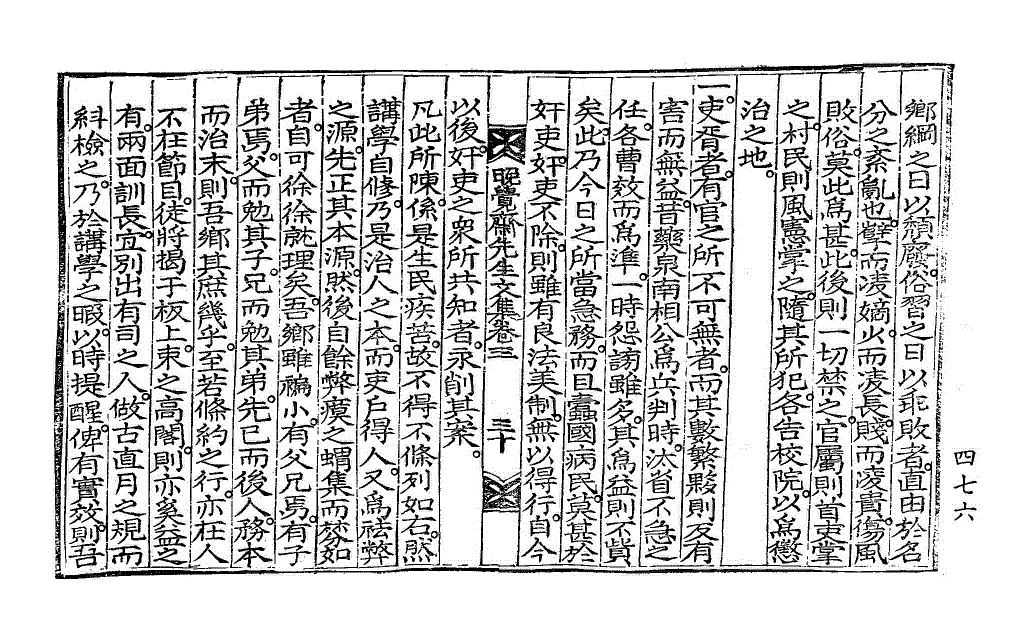 鄕綱之日以頹廢俗習之日以乖敗者直由於名
分之紊亂也孼而凌嫡少而凌長賤而凌貴傷風
敗俗莫此爲甚此後則一切禁之官屬則首吏掌
之村民則風憲掌之隨其所犯各告校院以爲懲
治之地
一吏胥者有官之所不可無者而其數繁夥則反有
害而無益昔藥泉南相公爲兵判時汰省不急之
任各曹效而爲準一時怨謗雖多其爲益則不貲
矣此乃今日之所當急務而且蠧國病民莫甚於
奸吏奸吏不除則雖有良法美制無以得行自今
晩覺齋先生文集卷三
三十
以後奸吏之衆所共知者永削其案
凡此所陳係是生民疾苦故不得不條列如右然
講學自修乃是治人之本而吏戶得人又爲祛弊
之源先正其本源然後自餘弊瘼之蝟集而棼如
者自可徐徐就理矣吾鄕雖褊小有父兄焉有子
弟焉父而勉其子兄而勉其弟先己而後人務本
而治末則吾鄕其庶幾乎至若條約之行亦在人
不在節目徒將揭于板上束之高閣則亦奚益之
有兩面訓長宜別出有司之人做古直月之規而
糾檢之乃於講學之暇以時提醒俾有實效則吾
四七六